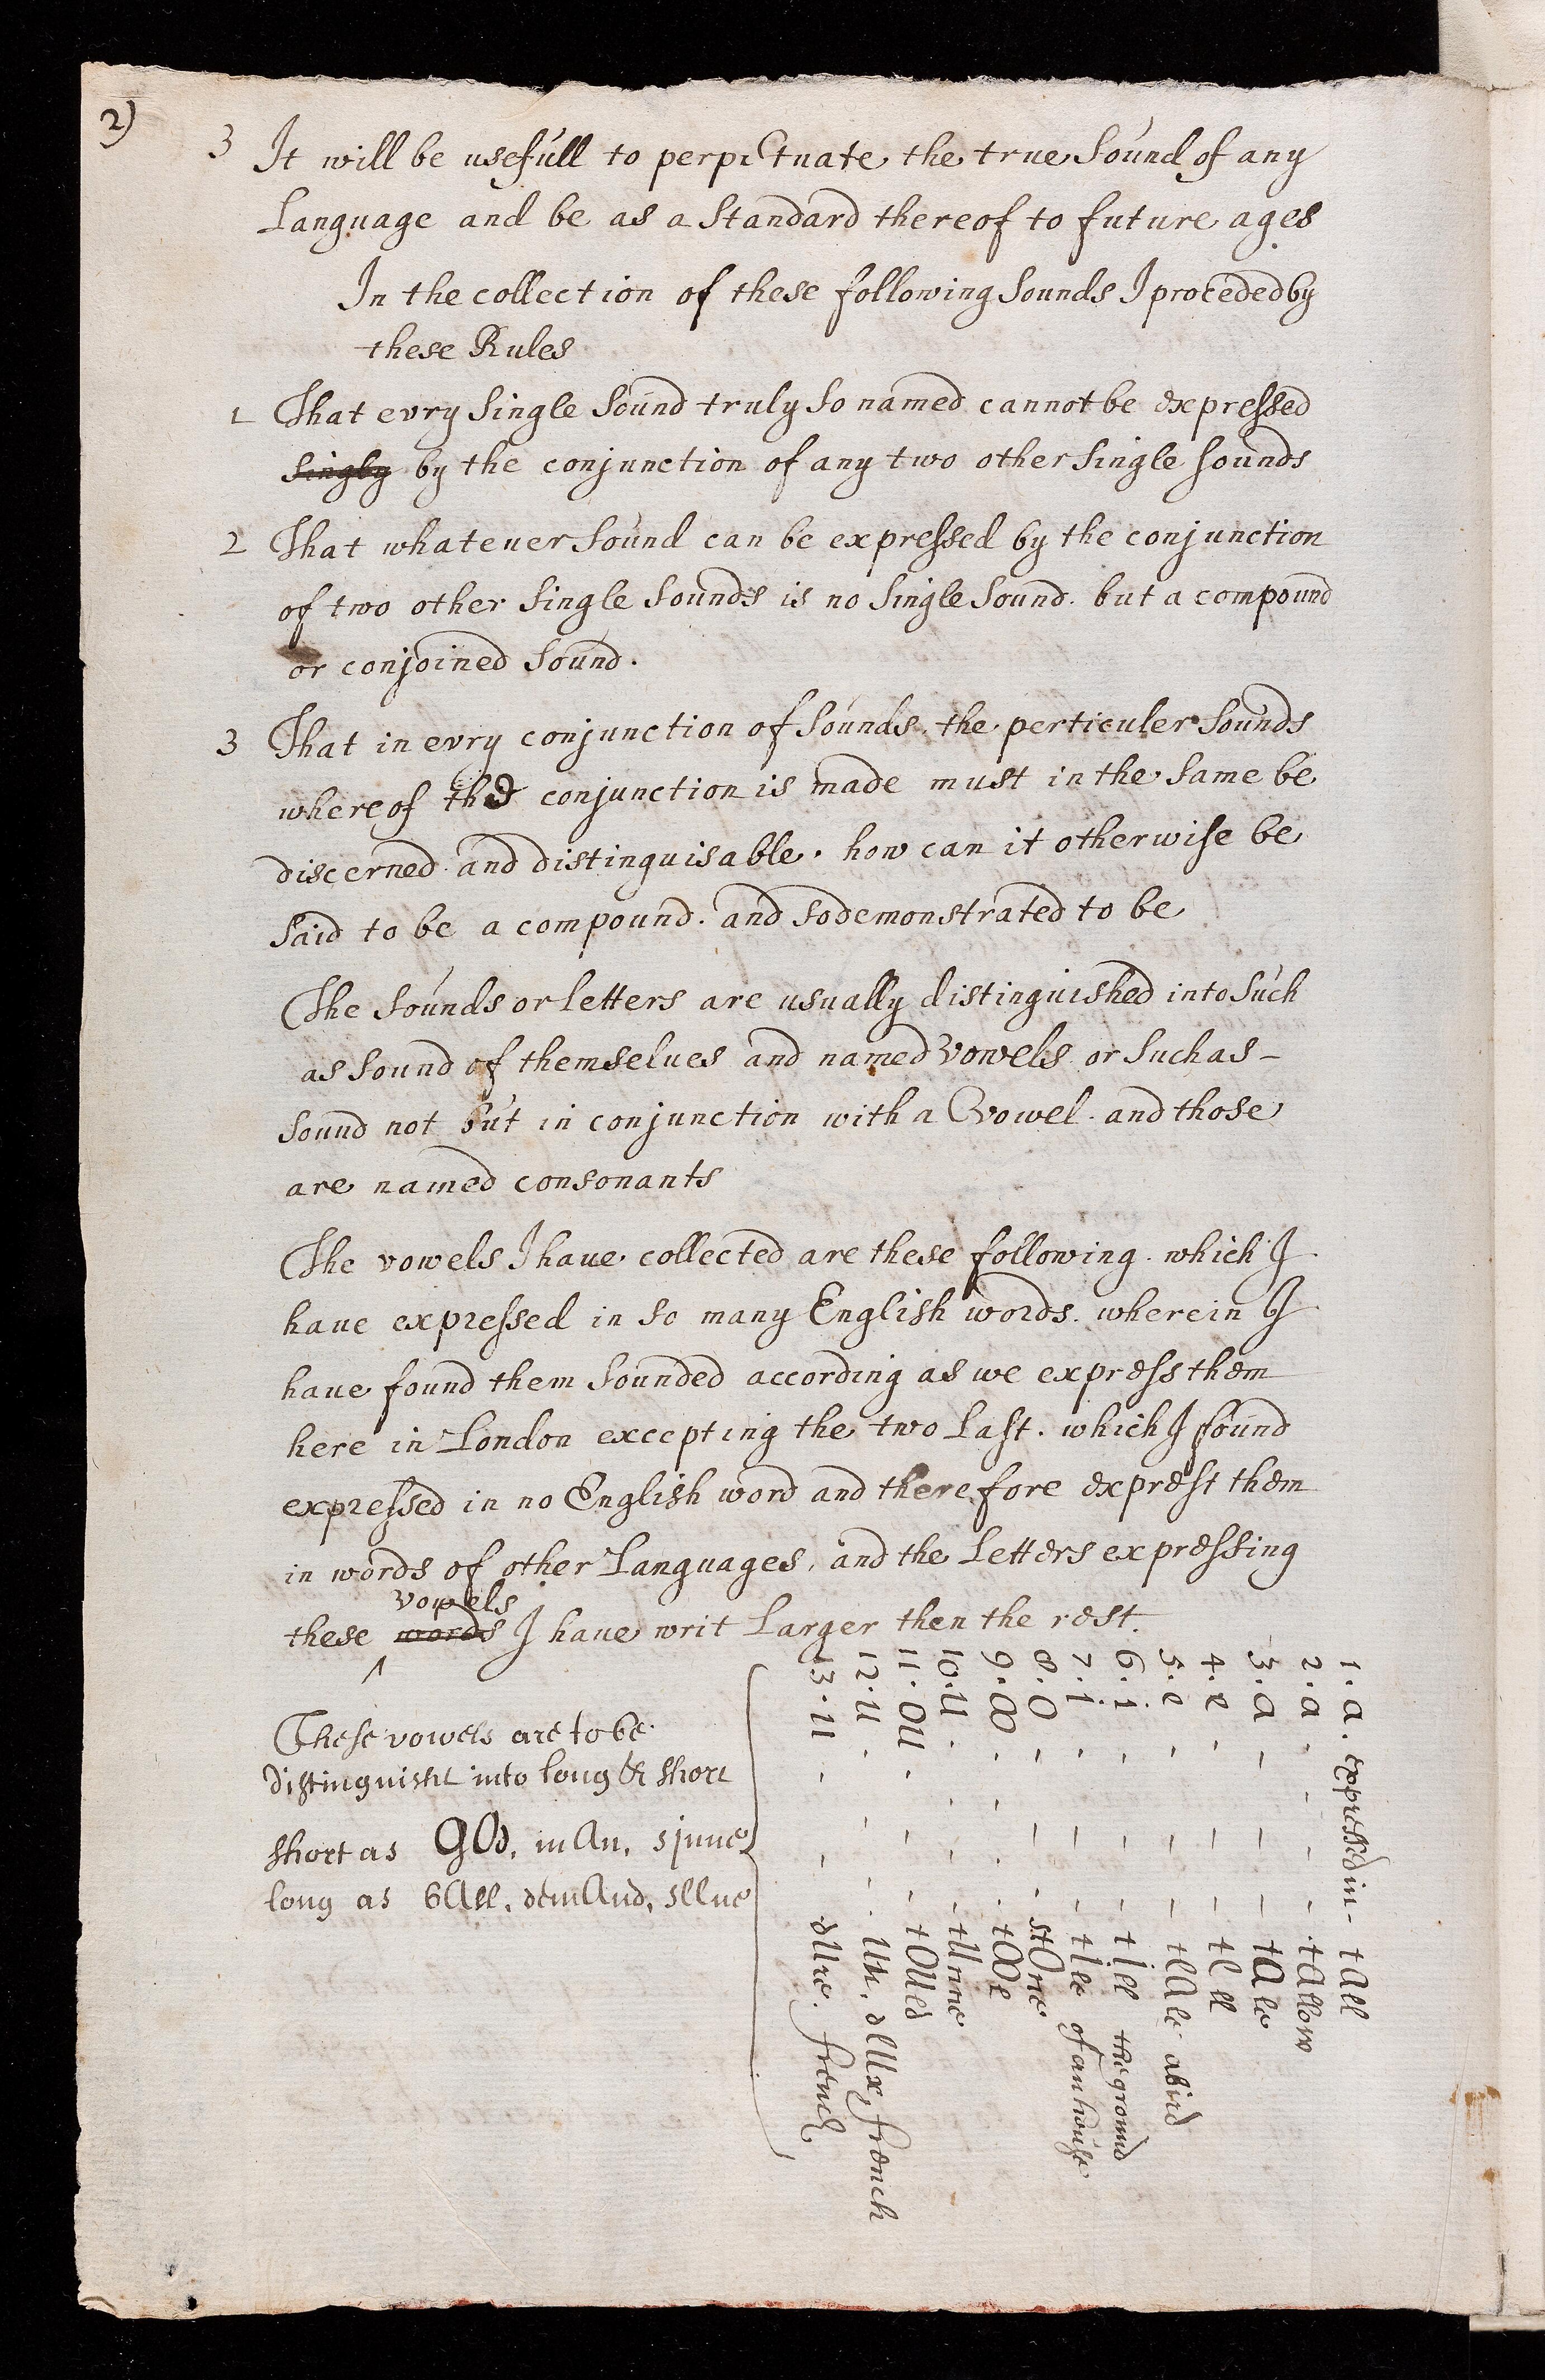 2)
3 It will be usefull to perpetuate the true Sound of any
Language and be as a Standard thereof to future ages
In the collection of these following Sounds I proceded by
these Rules
1 That evry Single Sound truly so named cannot be expressed
by the conjunction of any two other Single Sounds
2 That whateuer Sound can be expressed by the conjunction
of two other Single Sounds is no Single Sound. but a compound
or conjoined Sound.
3 That in evry conjunction of Sounds. the perticuler Sounds
whereof the conjunction is made must in the same be
discerned and distinguisable. how can it otherwise be
Said to be a compound. and so demonstrated to be
The Sounds or letters are usually distinguished into Such
as Sound of themselues and named vowels or Such as -
Sound not but in conjunction with a vowel. and those
are named consonants
The vowels I haue collected are these following. which I
haue expressed in so many English words. wherein I
haue found them Sounded according as we express them
here in London excepting the two Last. which I found
expressed in no English word and therefore exprest them
in words of other Languages, and the Letters expressing
these words vowels I haue writ Larger then the rest.
1. a. expressed in - tAll
2. a - - - - tAllow
3. a - - - tAle
4. e - - - tEll
5. e - - - tEAle a bird
6. i - - - tIll the ground
7. i - - - tIle of an house
8. o - - - stOne
9. oo - - - tOOl
10. u - - - tUnne
11. ou - - - tOUld
12. u - - - dUUx, french
13. u - - - dUre. french
These vowels are to be
distinguisht into long & short
short as gOd, mAn, sjnne
long as bAll, demAnd,